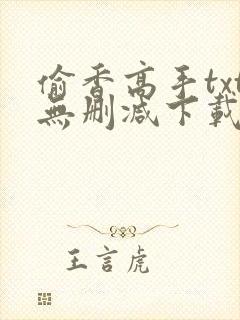 偷香高手txt
無刪減下載
王言虎